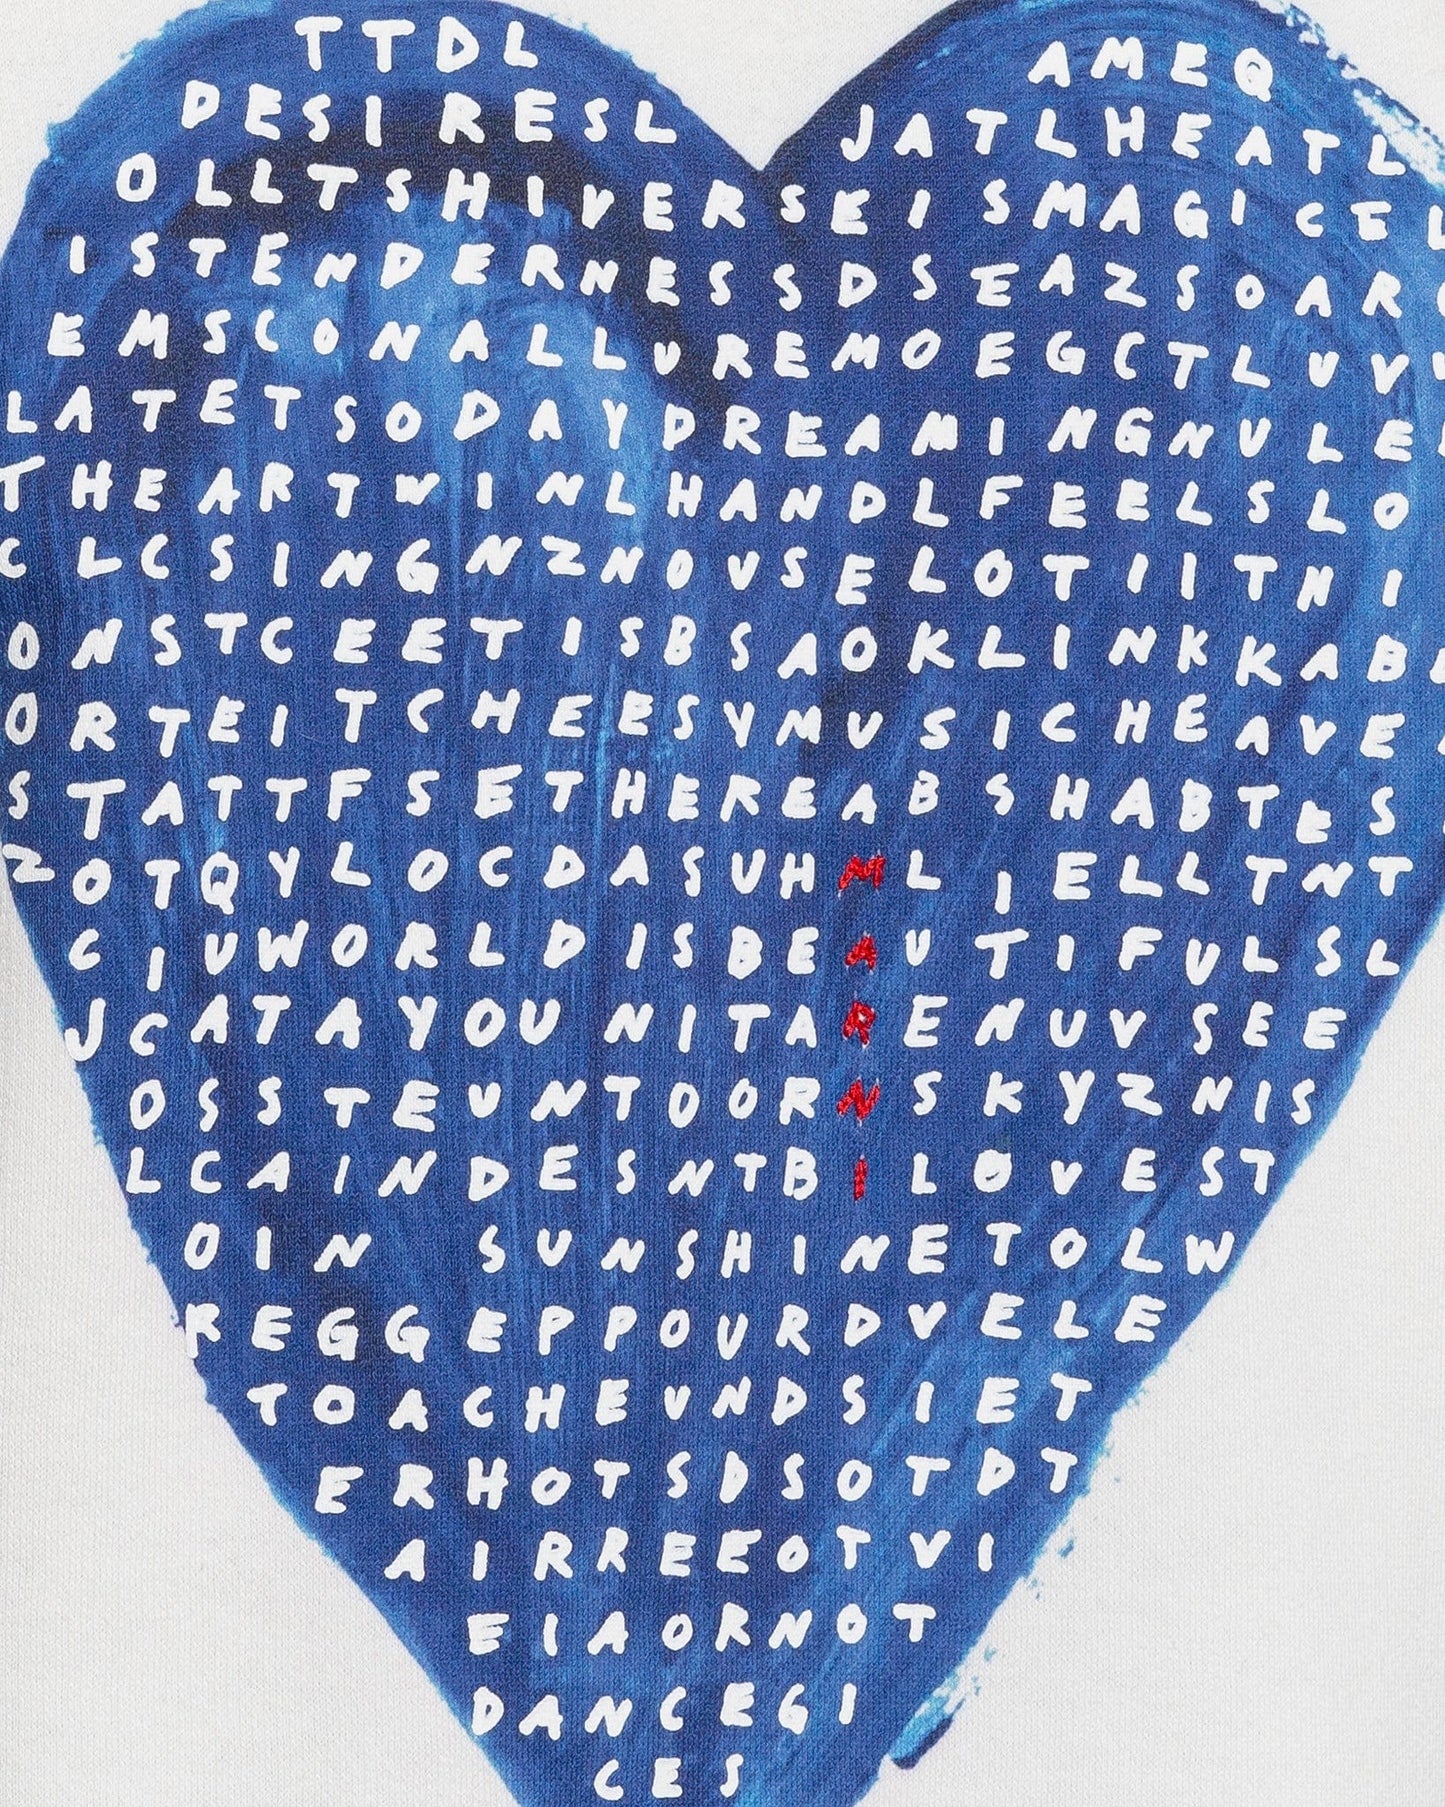 TTDL AMEQ
DESIRESL JATLHEATL
OLLTSHIVERSEISMAGICEL
ISTENDERNESSDSEAZSOAR
EMSCONALLUREMOEGCTLUV
LATETSODAYDREAMINGNULE
THEARTWINLHANDLFEELSLO
CLCSINGNZNOVSELOTIITNI
ONSTCEETISBSAOKLINKKAB
ORTEITCHEESYMUSICHEAVE
STATTFSETHEREABSHABTES
ZOTQYLOCDASUHMLIELLTNT
CIUWORLDISBEAUTIFULSL
JCATAYOUNITARENUVSEE
OSSTEUNTOORNSKYZNIS
LCAINDESNTBILOVEST
OIN SUNSHINETOLW
REGGEPPOURDVELE
TOACHEUNDSIET
ERHOTSDSOTDT
AIRREEOTVI
EIAORNOT
DANCEGI
CES